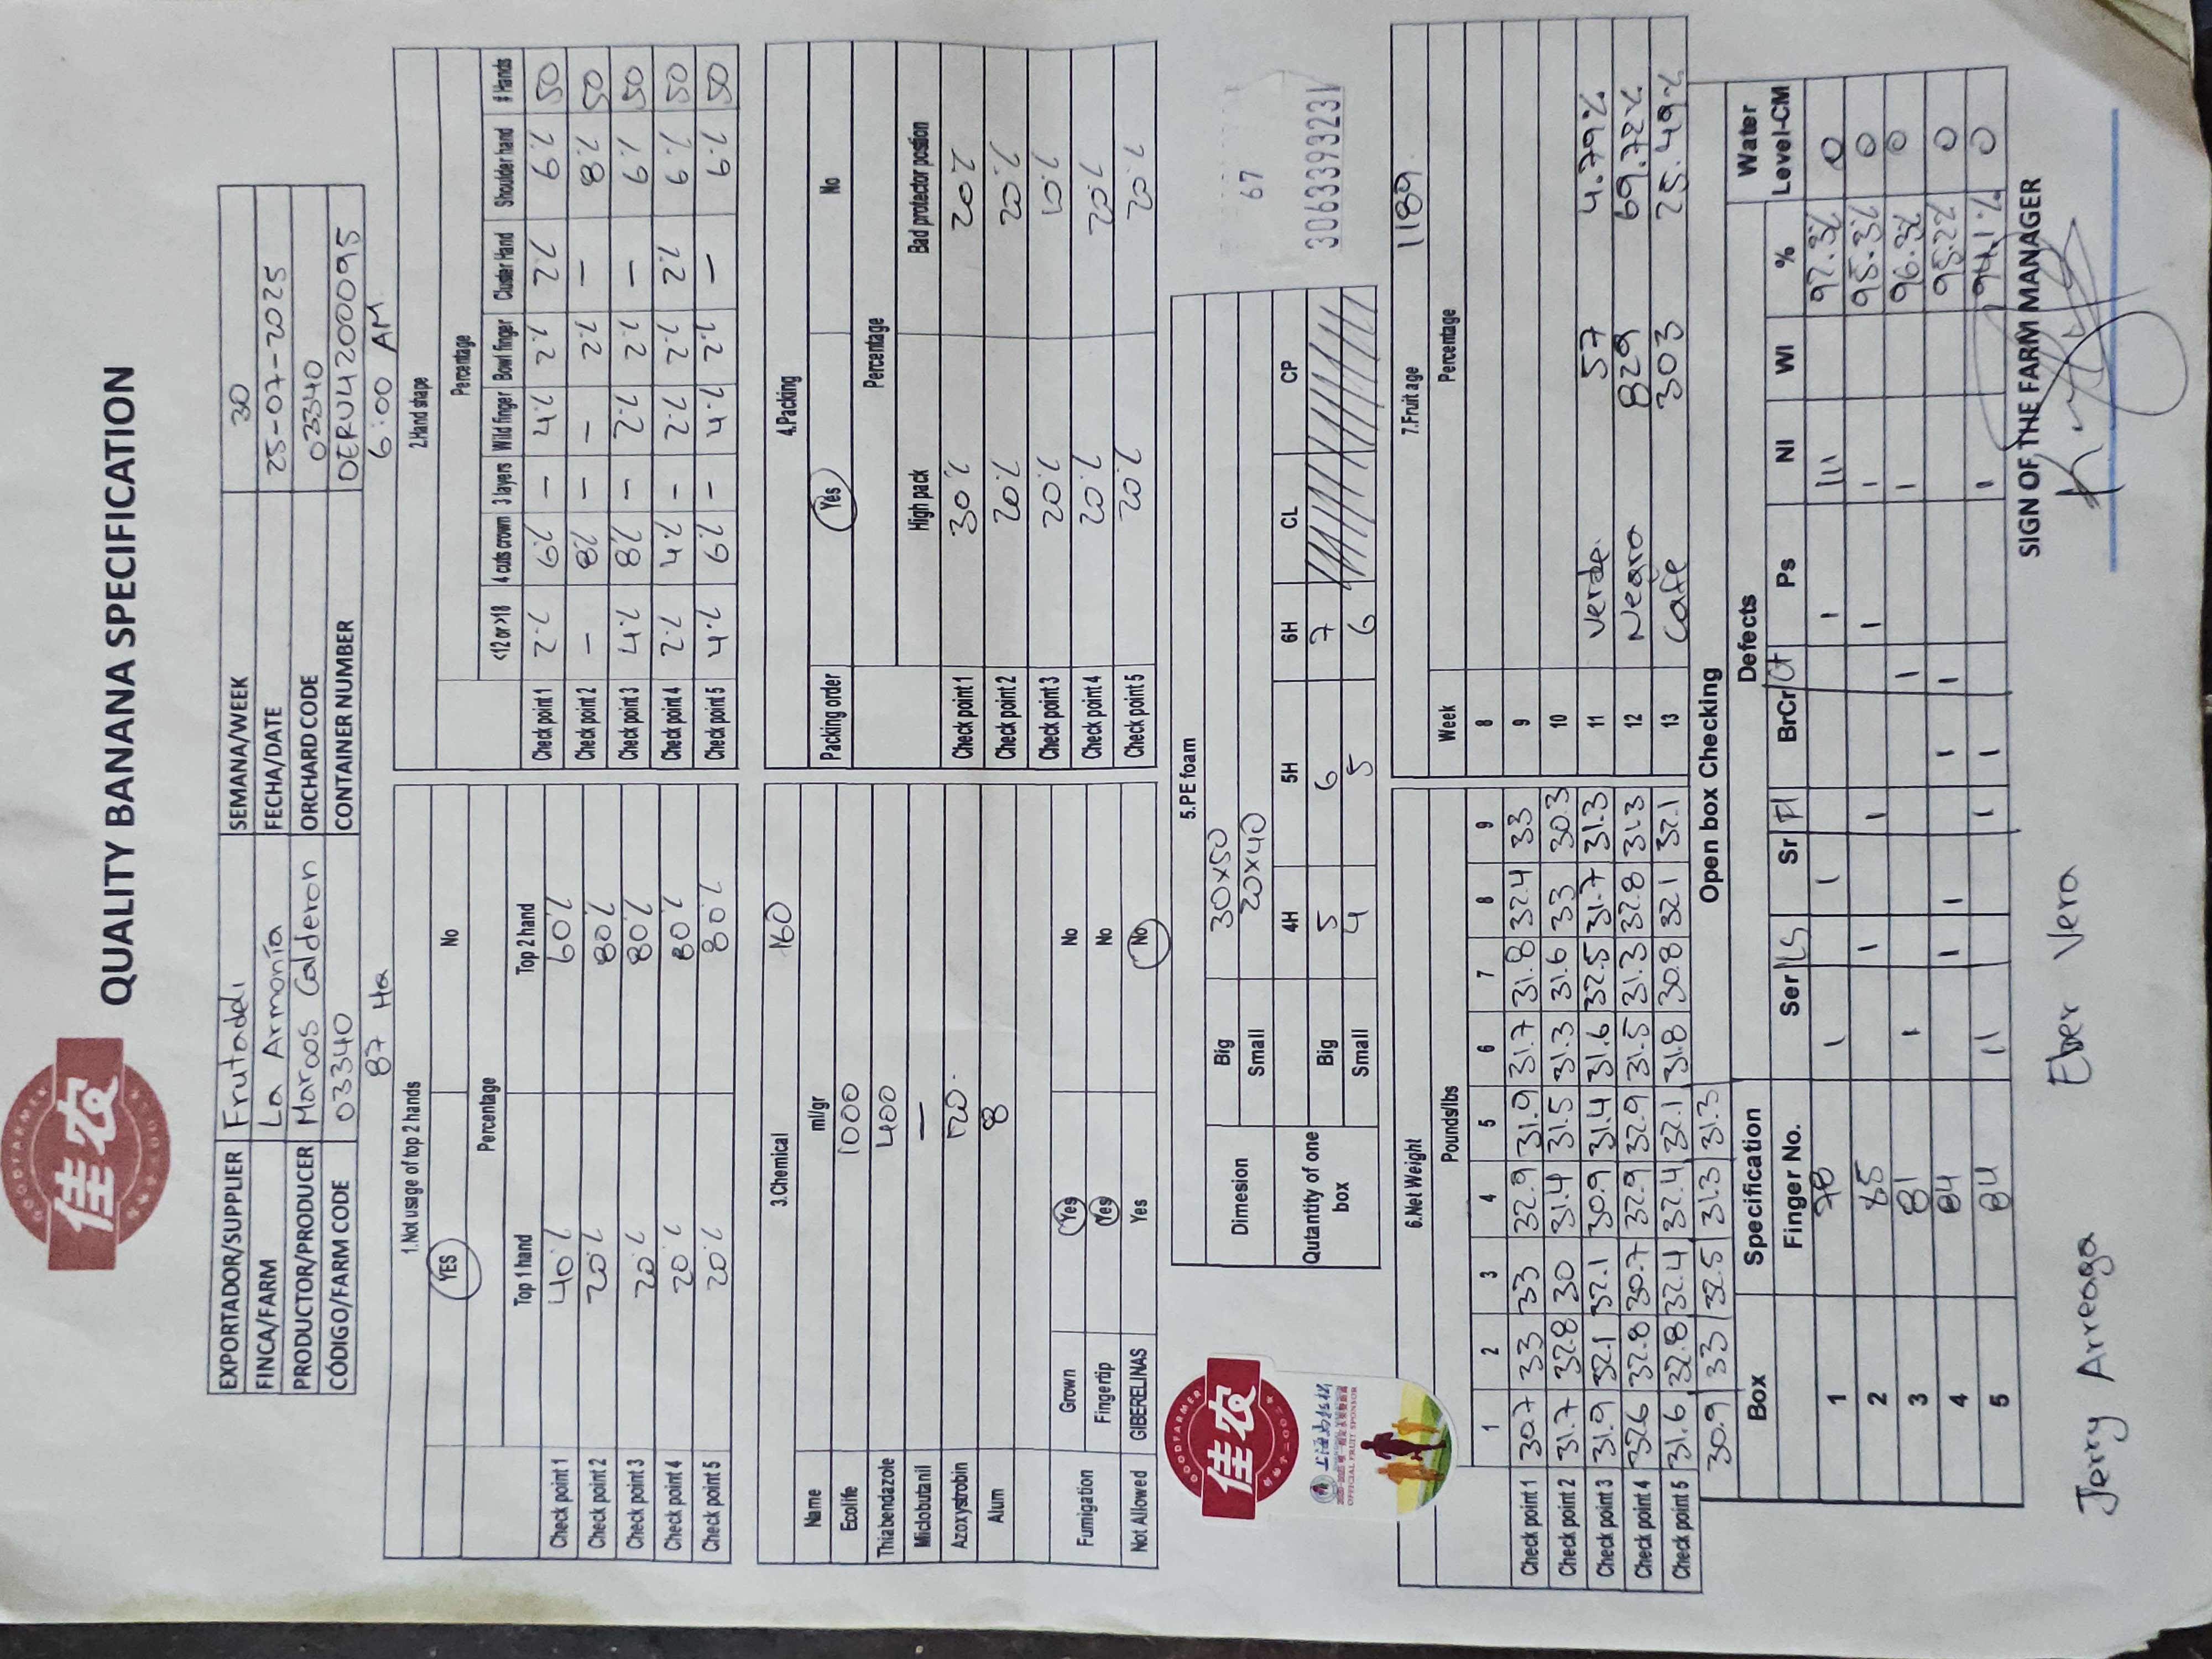 GOODFARMER
佳农
QUALITY BANANA SPECIFICATION
EXPORTADOR/SUPPLIER Frutadeli SEMANA/WEEK 30
FINCA/FARM La Armonía FECHA/DATE 25-07-2025
PRODUCTOR/PRODUCER Marcos Calderon ORCHARD CODE 03340
CÓDIGO/FARM CODE 03340 CONTAINER NUMBER OERU4200095
87 Ha 6:00 AM
1.Not usage of top 2 hands
YES No
Percentage
Top 1 hand Top 2 hand
Check point 1 40% 60%
Check point 2 20% 80%
Check point 3 20% 80%
Check point 4 20% 80%
Check point 5 20% 80%
2.Hand shape
Percentage
<12 or >18 4 cuts crown 3 layers Wild finger Bowl finger Cluster Hand Shoulder hand # Hands
Check point 1 2% 6% - 4% 2% 2% 6% 50
Check point 2 - 8% - - 2% - 8% 50
Check point 3 4% 8% - 2% 2% - 6% 50
Check point 4 2% 4% - 2% 2% 2% 6% 50
Check point 5 4% 6% - 4% 2% - 6% 50
3.Chemical 160
Name ml/gr
Ecolife 1000
Thiabendazole 400
Miclobutanil —
Azoxystrobin 120
Alum 8
Fumigation Grown Yes No
Fingertip Yes No
Not Allowed GIBERELINAS Yes No
4.Packing
Packing order Yes No
Percentage
High pack Bad protector postion
Check point 1 30% 20%
Check point 2 20% 20%
Check point 3 20% 10%
Check point 4 20% 20%
Check point 5 20% 20%
GOODFARMER
佳农
上海马拉松
OFFICIAL FRUIT SPONSOR
5.PE foam
Dimesion Big 30x50
Small 20x40
Qutantity of one box 4H 5H 6H CL CP
Big 5 6 7
Small 4 5 6
67
3063393231
6.Net Weight
Pounds/lbs
1 2 3 4 5 6 7 8 9
Check point 1 30.7 33 33 32.9 31.9 31.7 31.8 32.4 33
Check point 2 31.7 32.8 30 31.4 31.5 31.3 31.6 33 30.3
Check point 3 31.9 32.1 32.1 30.9 31.4 31.6 32.5 31.7 31.3
Check point 4 32.6 32.8 30.7 32.9 32.9 31.5 31.3 32.8 31.3
Check point 5 31.6 32.8 32.4 32.4 32.1 31.8 30.8 32.1 32.1
30.9 33 32.5 31.3 31.3
7.Fruit age 1189
Week Percentage
8
9
10
11 verde. 57 4.79%
12 Negro 829 69.72%
13 café 303 25.49%
Open box Checking
Box Specification Defects Water
Finger No. Ser LS Sr Fl BrCr Ct Ps NI WI % Level-CM
1 78 I I I III 92.3% 0
2 85 I I I I 95.3% 0
3 81 I I I 96.3% 0
4 84 I I I I 95.2% 0
5 84 II I I I 94.1% 0
SIGN OF THE FARM MANAGER
Jerry Arreaga Eber Vera